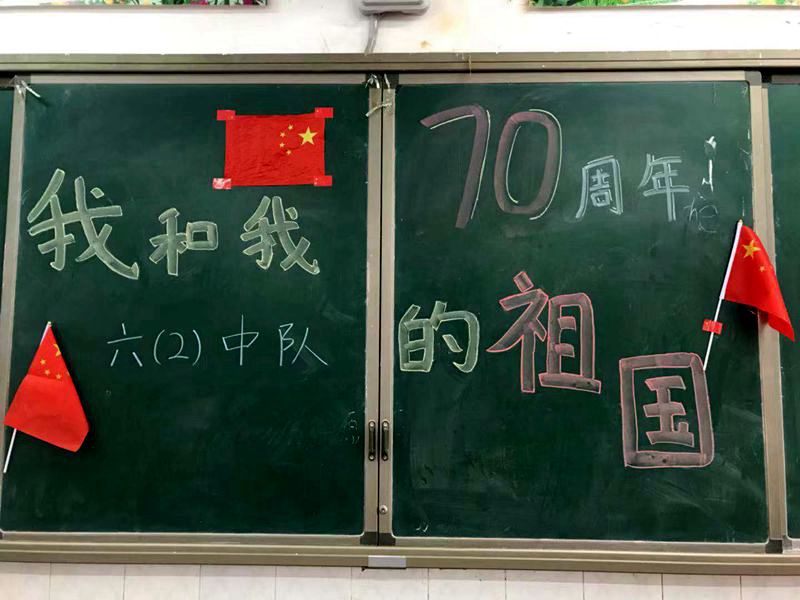 70周年
我和我
的祖国
六(2)中队